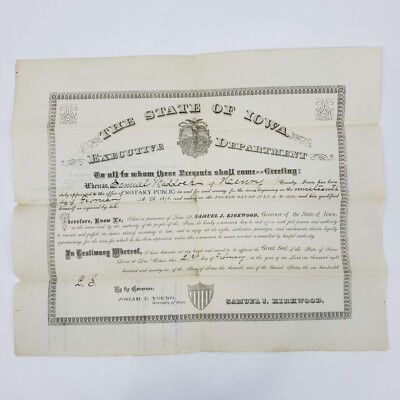 THE STATE OF IOWA
EXECUTIVE DEPARTMENT
To all to whom these Presents shall come — Greeting:
Whereas, Samuel of Henry County, Iowa, has been
duly appointed to the office of NOTARY PUBLIC in and for said county, for the term beginning on the nineteenth
day of A.D. 187 and ending on the FOURTH DAY OF JULY, A.D. 18 and has qualified
himself as required by law
Therefore, Know Ye, That in pursuance of Law, I, SAMUEL J. KIRKWOOD, Governor of the State of Iowa,
in the name and by the authority of the people of the State, do hereby commission him to said office, with full power and authority
to execute and perform the duties thereof according to law, and to enjoy all the rights, privileges and emoluments thereunto legally
appertaining for the term for which he has been appointed, unless this commission is sooner revoked by lawful authority.
In Testimony Whereof, I have hereunto set my hand and caused to be affixed the Great Seal of the State of Iowa.
Done at Des Moines this 2nd day of February in the year of our Lord one thousand eight
hundred and seventy-six, of the State of Iowa the and of the United States the one hundredth
L.S.
By the Governor:
JOSIAH T. YOUNG,
Secretary of State.
SAMUEL J. KIRKWOOD.